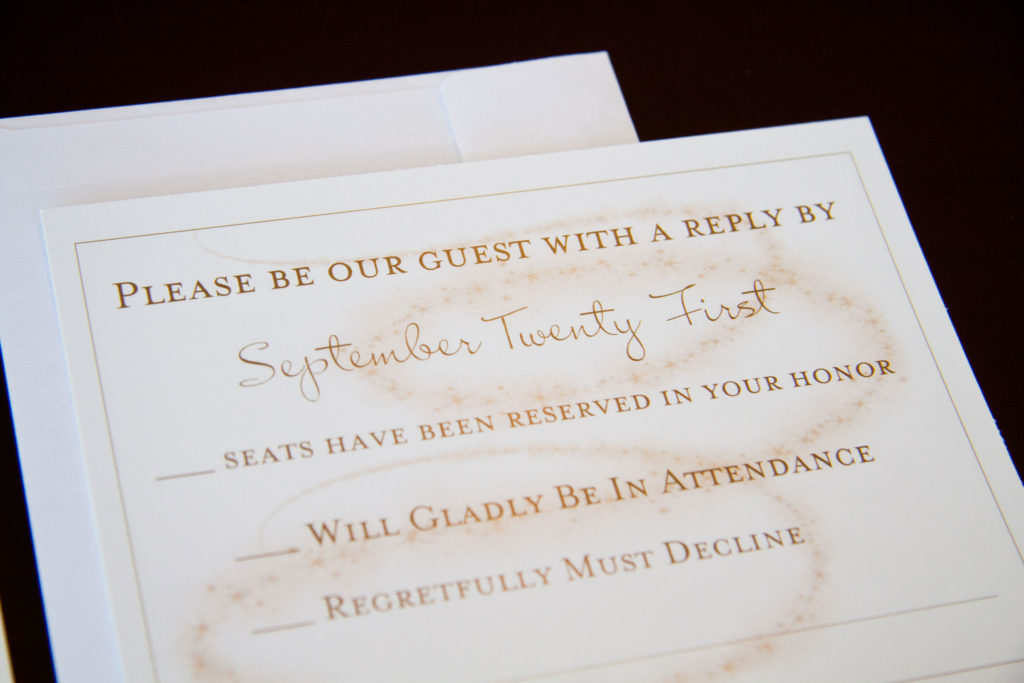 Please be our guest with a reply by
September Twenty First
___ seats have been reserved in your honor
___ Will Gladly Be In Attendance
___ Regretfully Must Decline